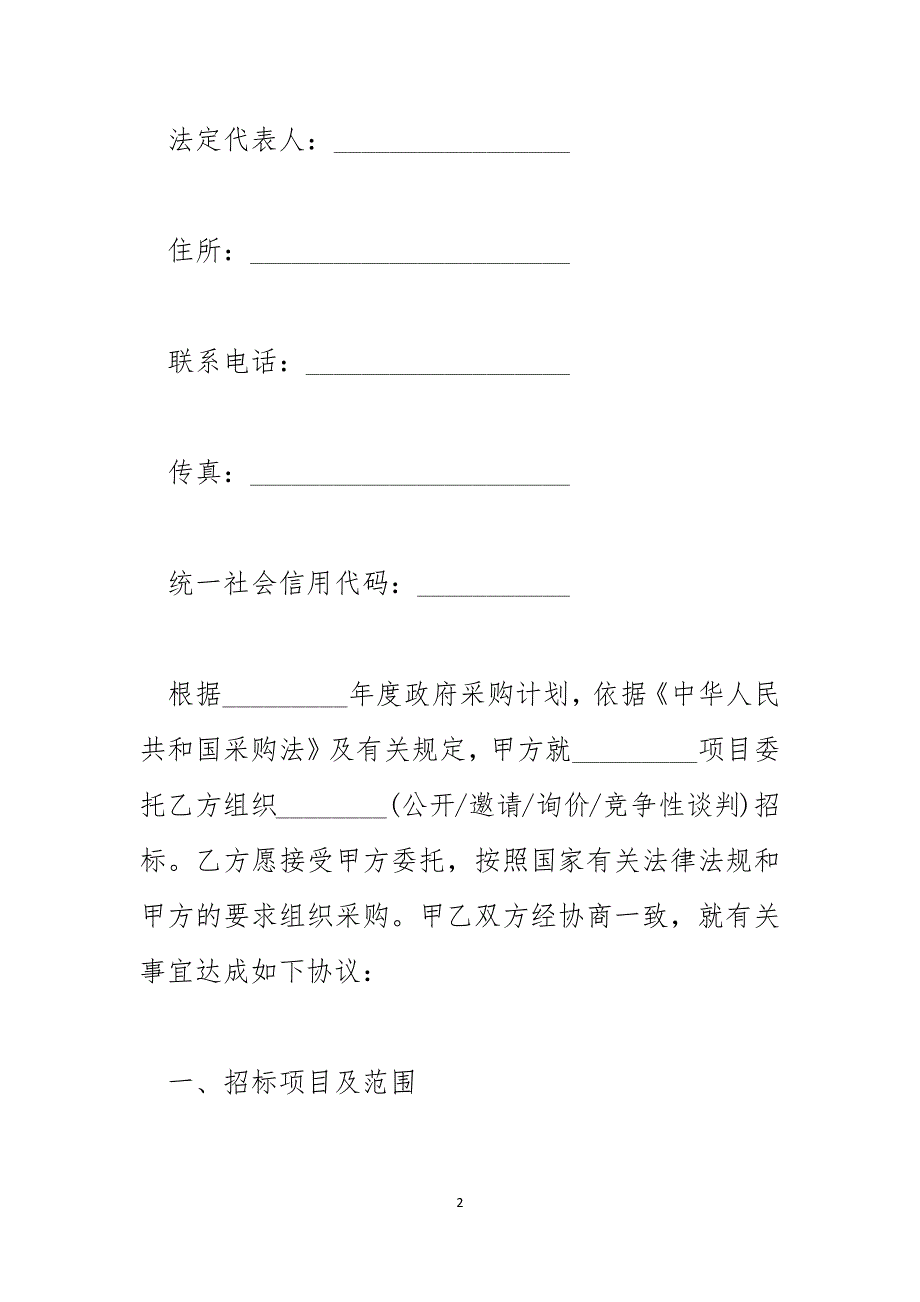 法定代表人：_________________
住所：_______________________
联系电话：___________________
传真：_______________________
统一社会信用代码：___________
根据_________年度政府采购计划，依据《中华人民
共和国采购法》及有关规定，甲方就_________项目委
托乙方组织________(公开/邀请/询价/竞争性谈判)招
标。乙方愿接受甲方委托，按照国家有关法律法规和
甲方的要求组织采购。甲乙双方经协商一致，就有关
事宜达成如下协议：
一、招标项目及范围
2